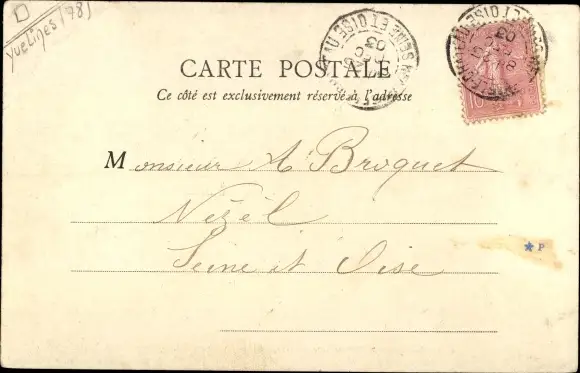 Yvelines (78)
CARTE POSTALE
Ce côté est exclusivement réservé à l'adresse
Monsieur A Broquet
Nézel
Seine et Oise
SEINE ET OISE
03
10
P